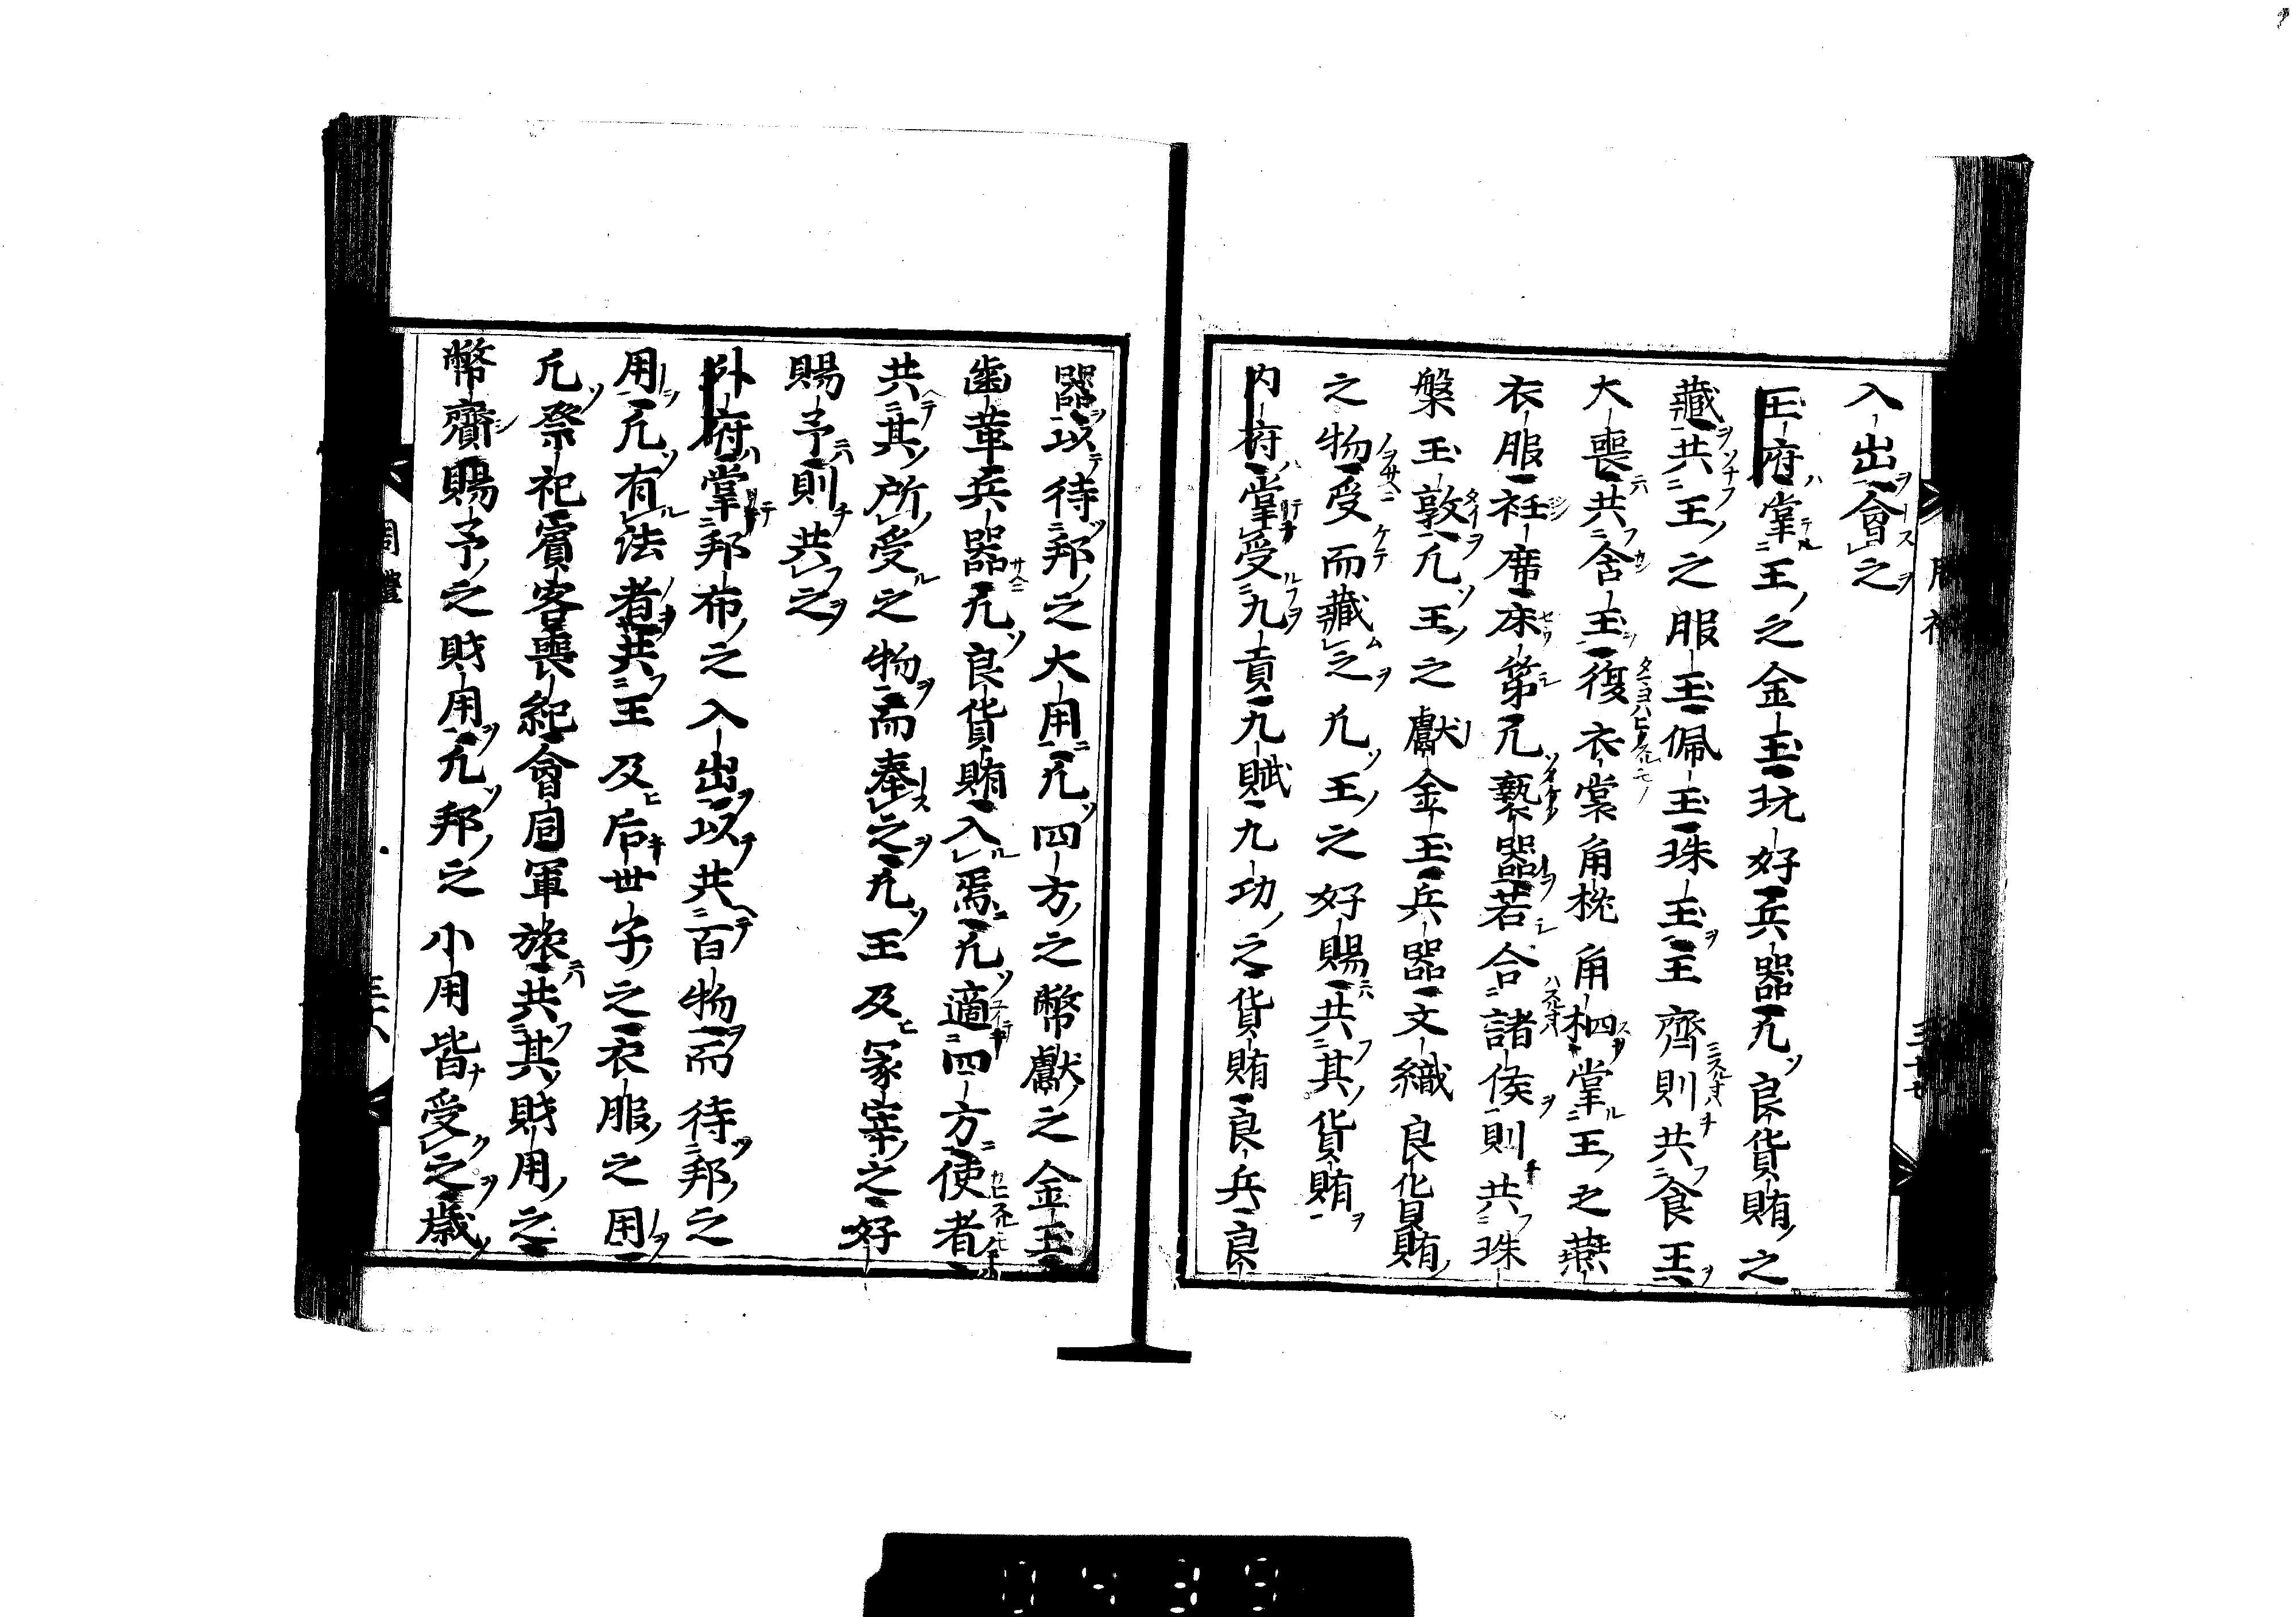 入出會之
玉府掌王之金玉玩好兵器凡良貨賄之
藏共王之服玉佩玉珠玉王齊則共食玉
大喪共含玉復衣裳角枕角柶掌王之燕
衣服衽席床第凡褻器若合諸侯則共珠
槃玉敦凡王之獻金玉兵器文織良貨賄
之物受而藏之凡王之好賜共其貨賄
內府掌受九貢九賦九功之貨賄良兵良
器以待邦之大用凡四方之幣獻之金玉
齒革兵器凡良貨賄入焉凡適四方使者
共其所受之物而奉之凡王及冢宰之好
賜予則共之
外府掌邦布之入出以共百物而待邦之
用凡有法者共王及后世子之衣服之用
凡祭祀賓客喪紀會同軍旅共其財用之
幣齎賜予之財用凡邦之小用皆受之歲
周禮